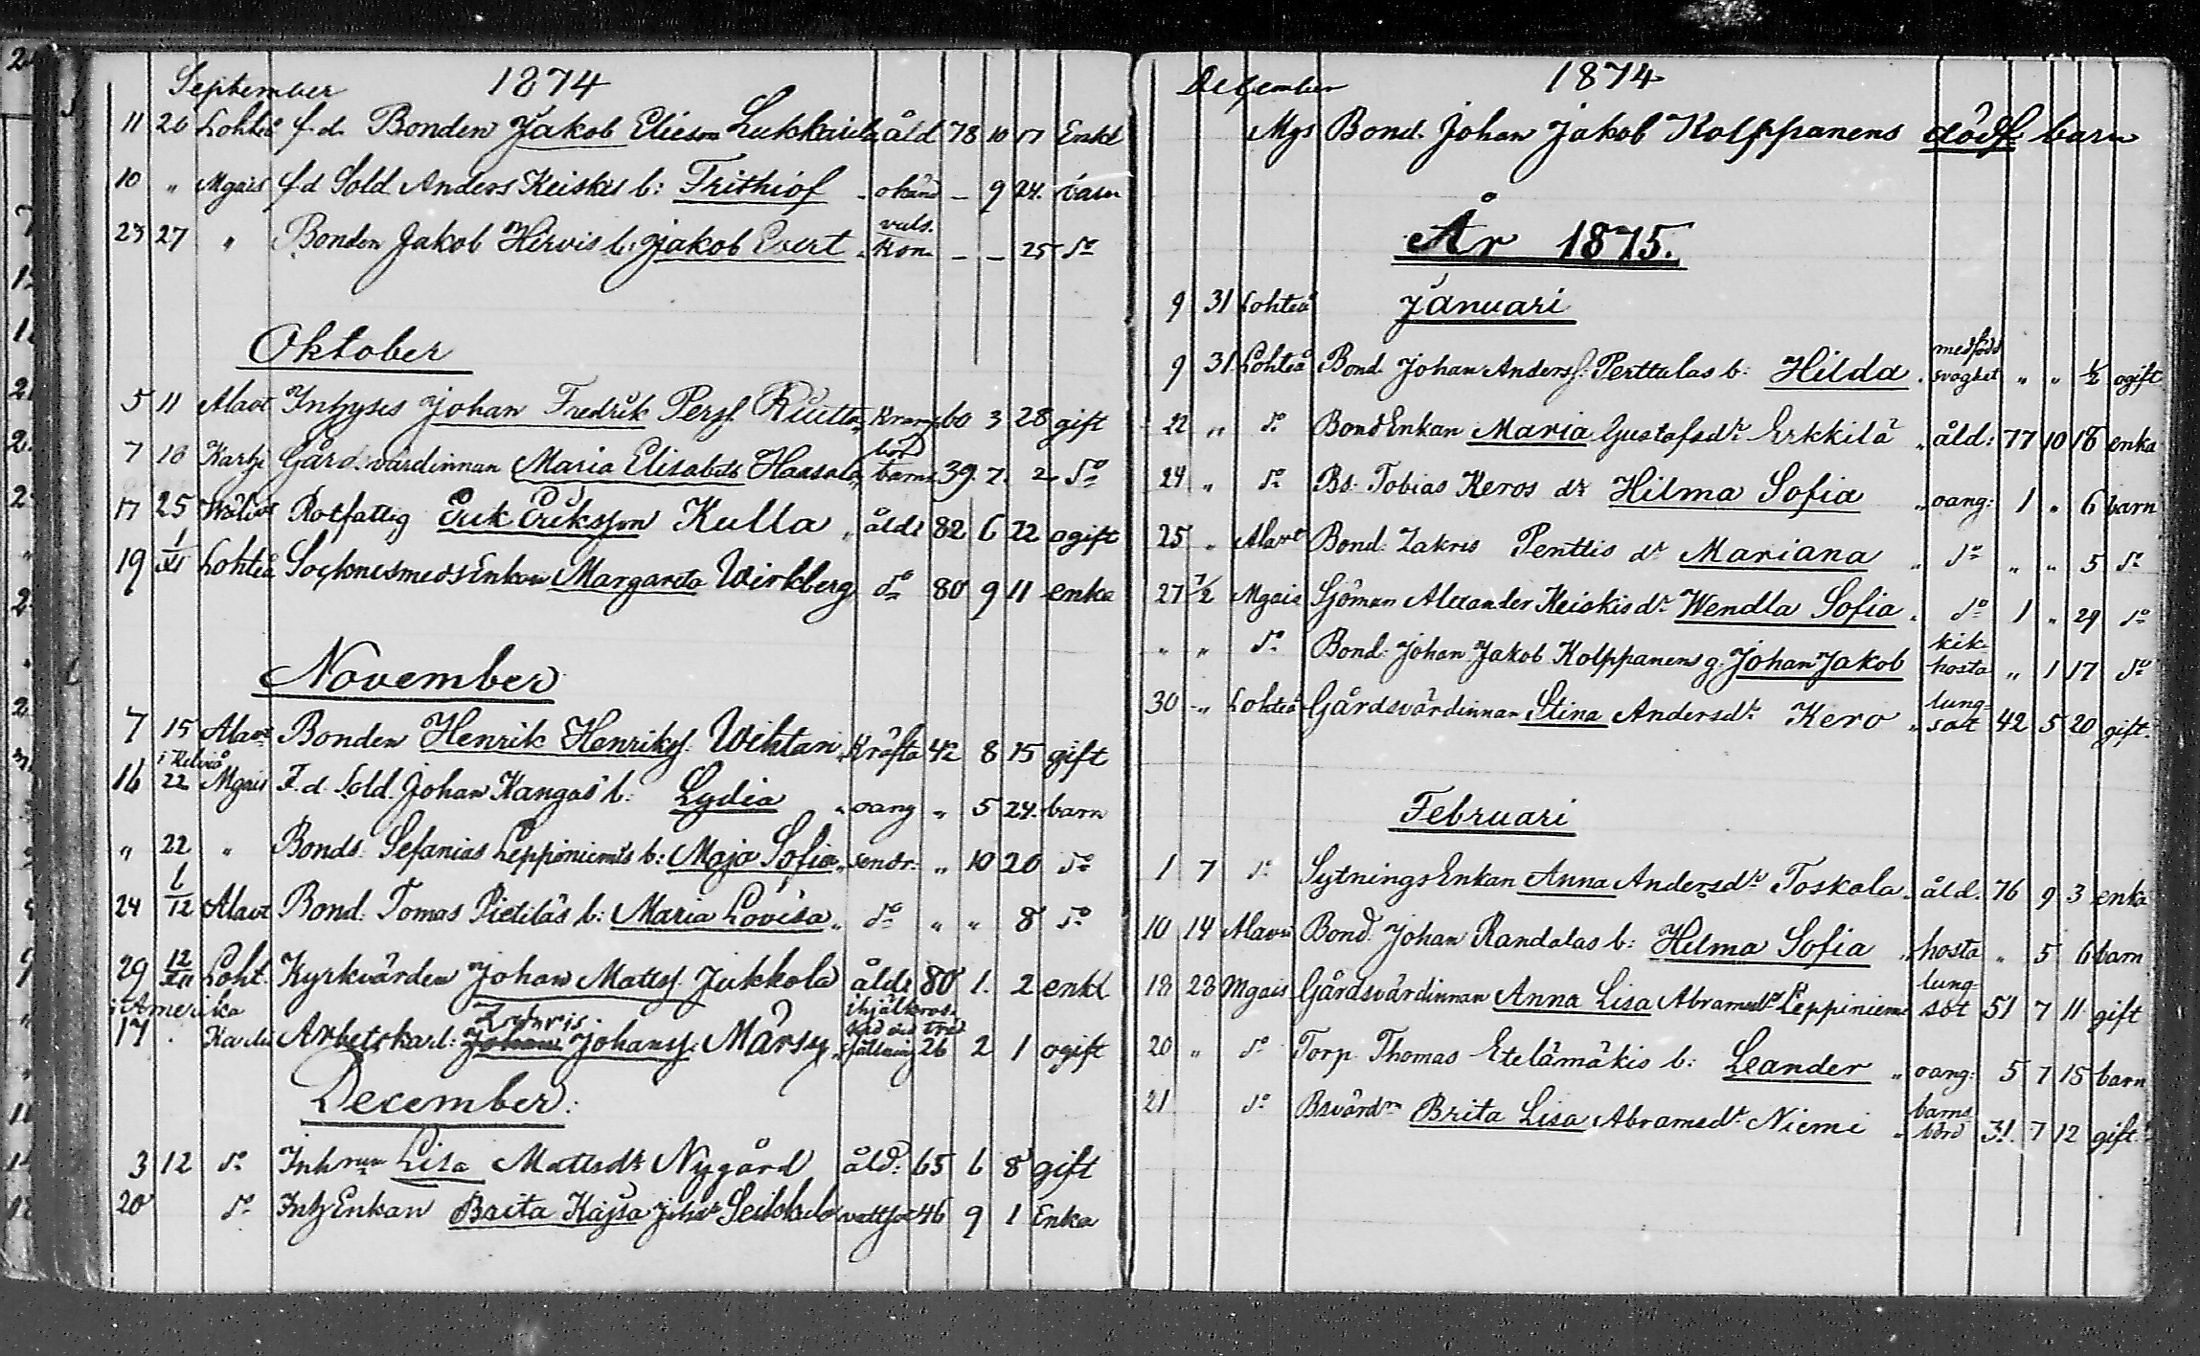 September 1874
11 20 Lohteå f.d. Bonden Jakob Elieson Lukkarila åld 78 10 17 Enkl
10 " Mgais f.d Sold Anders Keiskis b: Frithiof okänd – 9 24. barn
23 27 " Bonden Jakob Hirvis b: Jakob Evert " – – 25 do
Oktober
5 11 Alavt Inhyses Johan Fredrik Persf. Riutta " Kramp 60 3 28 gift
7 18 Karhi Gårdsvärdinnan Maria Elisabets Haasala " barns börd 39. 7. 2 do
17 25 Rotfattig Erik Eriksson Kulla " ålds 82 6 22 ogift
19 1/XI Lohteå Socknesmeds Enkan Margareta Wirkberg do 80 9 11 enka
November
7 15 Alavt Bonden Henrik Henriksf. Wihtari " Kräfta 42 8 15 gift
i Kelviå
16 22 Mgais F.d. Sold. Johan Kangas b: Lydia " oang " 5 24. barn
" 22 " Bonds. Sefanias Leppiniemis b: Maja Sofia " " 10 20 do
24 6/12 Alavt Bond. Tomas Pietiläs b: Maria Lovisa " do " " 8 do
29 12/XII Loht. Kyrkvärden Johan Mattsf. Jukkola ålds 80 1. 2 enkl
i Amerika Zakris ihjälkros-
17 . Karhi Arbetskarl: Johan Johansf. Märsy sad vid träd fällning 26 2 1 ogift
December:
3 12 do Lisa Mattsdr Nygård åld: 65 6 8 gift
20 do Inh Enkan Brita Kajsa Johsdr vattsot 46 9 1 Enka
December 1874
Mgs Bond. Johan Jakob Kolppanens dödf. barn
År 1875.
9 31 Lohteå Januari
9 31 Lohteå Bond. Johan Andersf. Perttulas b: Hilda . medfödd svaghet " " ½ ogift
22 " do Bond Enkan Maria Gustafsdr Erkkilä " åld: 77 10 18 enka
24 " do Bs. Tobias Keros dr Hilma Sofia " oang: 1 " 6 barn
25 " Alavt Bond. Zakris Penttis dr Mariana " do " " 5 do
27 7/2 Mgais Sjöman Alexander Keiskis dr Wendla Sofia . do 1 " 29 do
" " do Bond. Johan Jakob Kolppanens g. Johan Jakob kik-hosta " 1 17 do
30 " Lohteå Gårdsvärdinnan Stina Andersdr Kero " lung-sot 42 5 20 gift.
Februari
1 7 do Sytnings Enkan Anna Andersdr Toskala . åld. 76 9 3 enka
10 14 Alavt Bond. Johan Randalas b: Hilma Sofia " hosta " 5 6 barn
18 28 Mgais Gårdsvärdinnan Anna Lisa Abramsdr Leppiniemi lung-sot 51 7 11 gift
20 " do Torp. Thomas Etelämäkis b: Leander " oang: 5 7 15 barn
21 do Bsvärdn Brita Lisa Abramsdr Niemi " barns börd 31. 7 12 gift